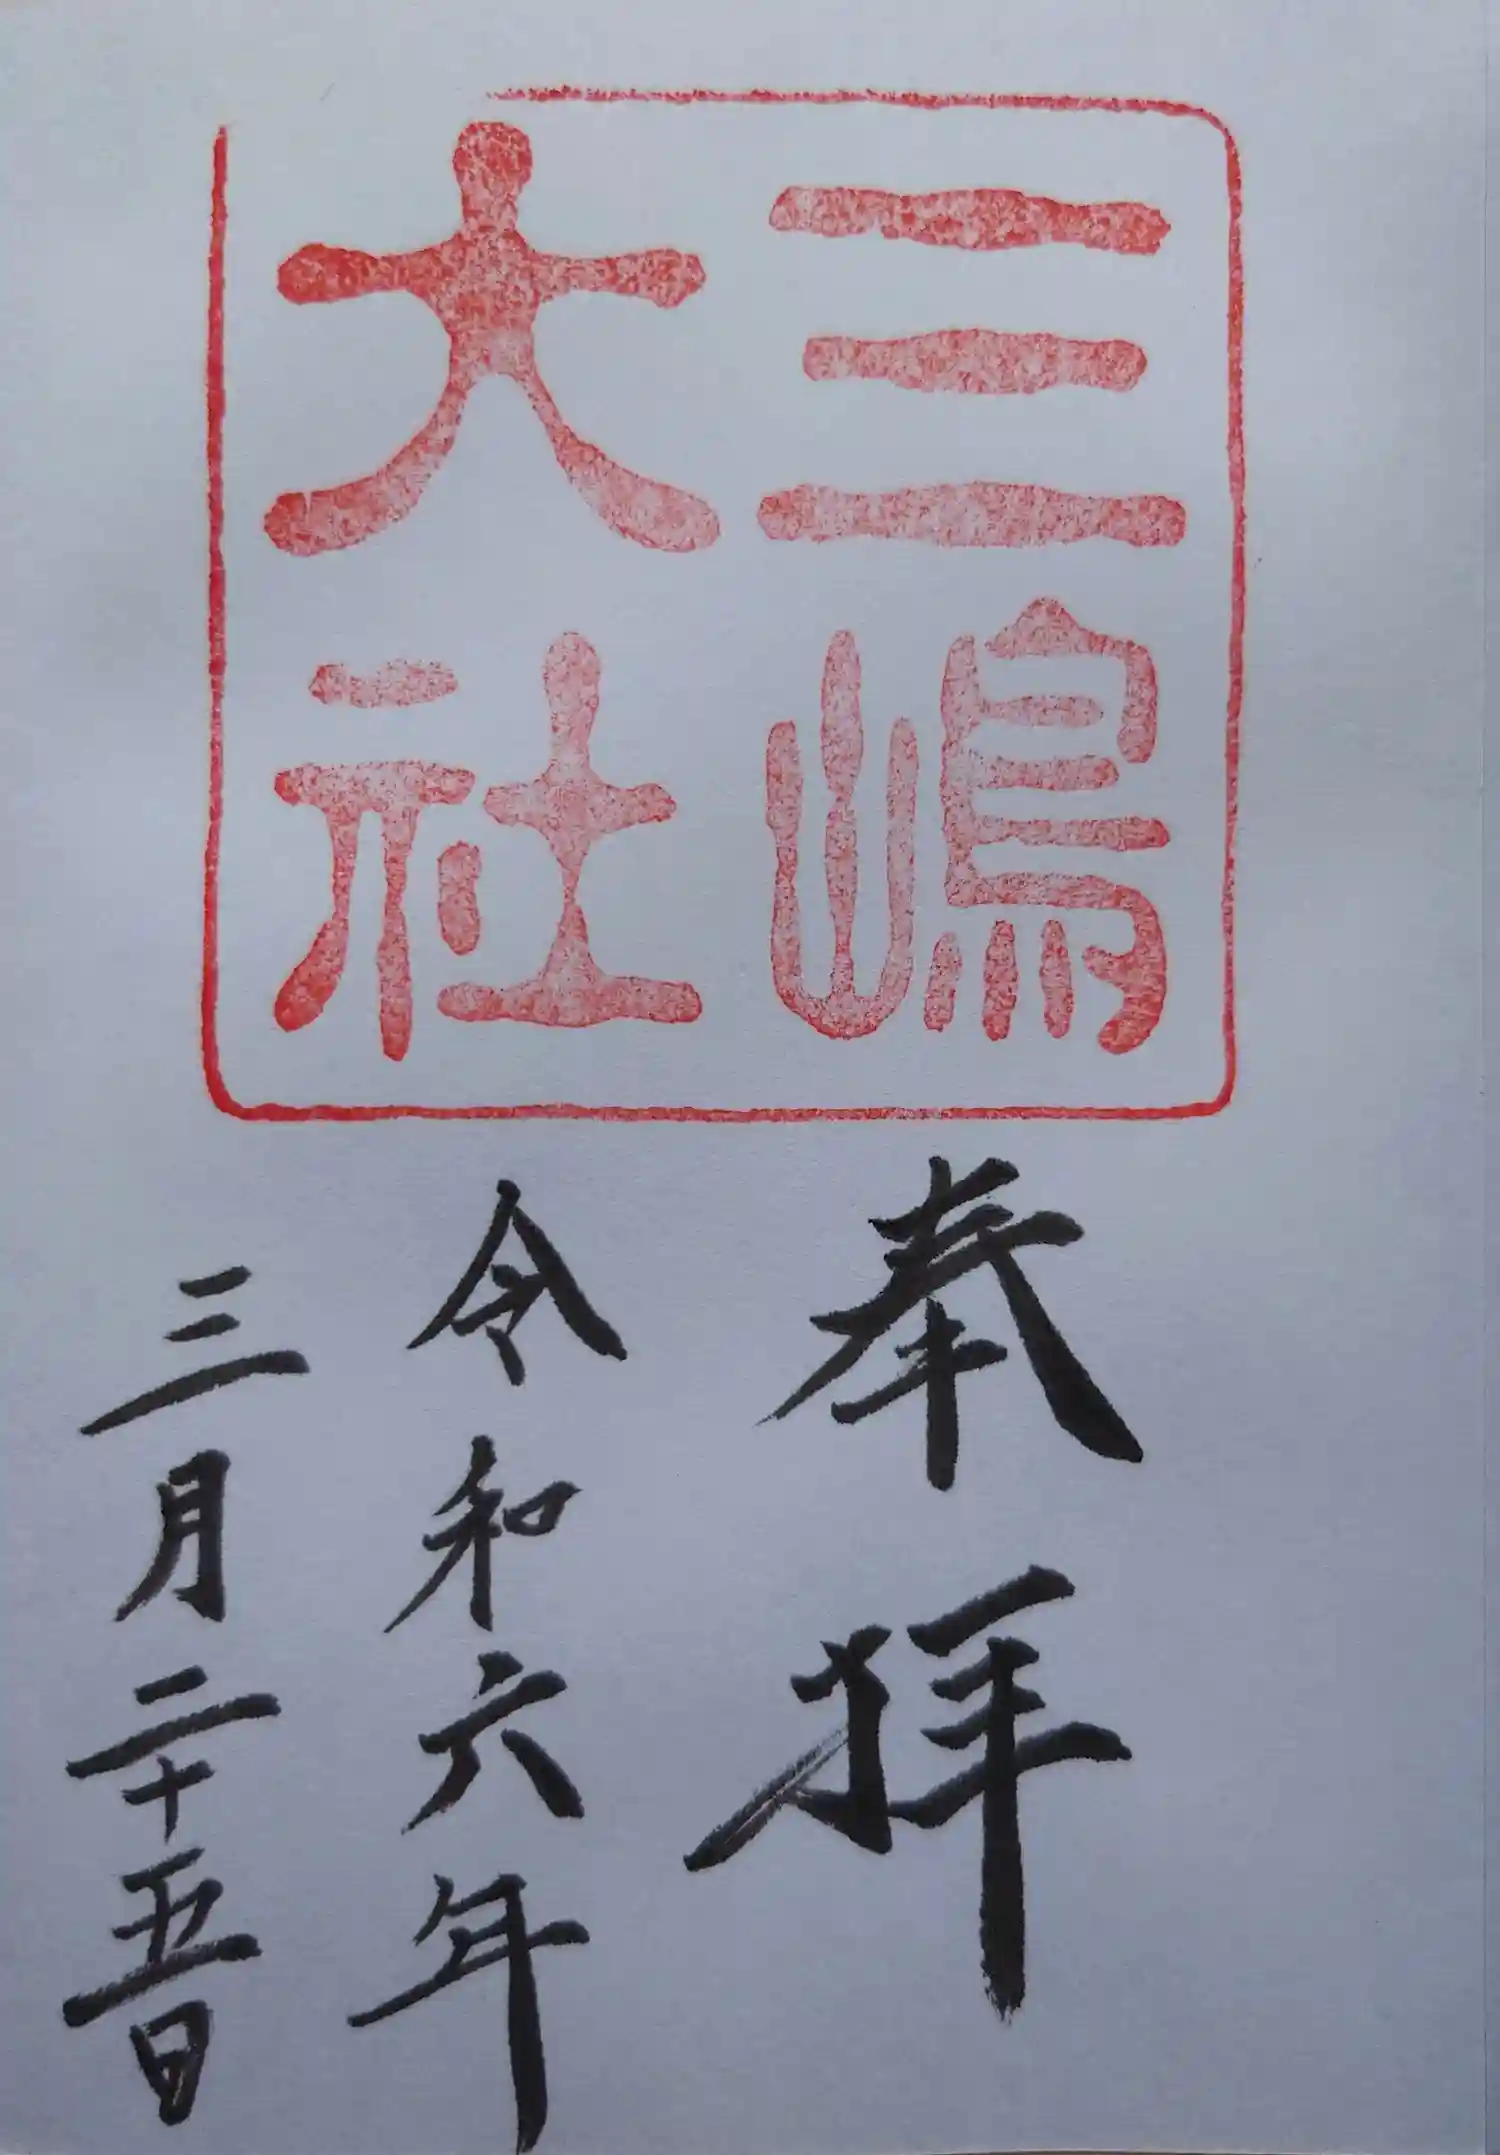 三嶋
大社
奉拝
令和六年
三月二十五日